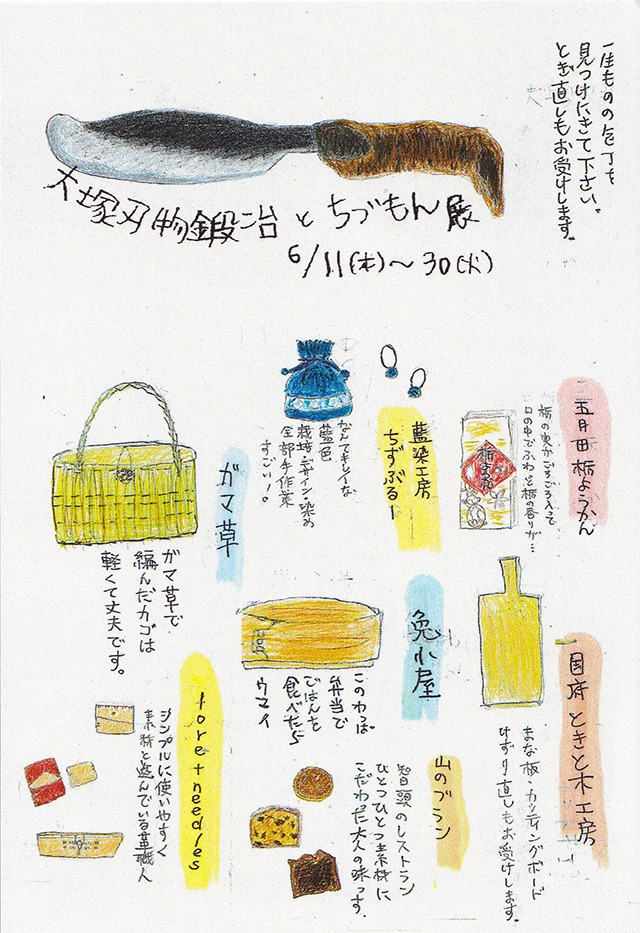 一生ものの包丁を
見つけにきて下さい。
とぎ直しもお受けします。
大塚刃物鍛冶 と ちづもん展
6/11(木)～30(火)
五月田栃ようかん
栃の実がごろごろ入って
口の中でふわっと栃の香りが…
藍染工房
ちずぶるー
なんてキレーな
藍色
栽培・デザイン・染め
全部手作業
すごいぃ。
ガマ草
ガマ草で
編んだカゴは
軽くて丈夫です。
国府 ときと木工房
まな板・カッティングボード
けずり直しもお受けします。
兔小屋
このわっぱ
弁当で
ごはんを
食べたら
ウマイ
山のブラン
智頭のレストラン
ひとつひとつ素材に
こだわった大人の味っす。
シンプルに使いやすく
素材と遊んでいる革職人